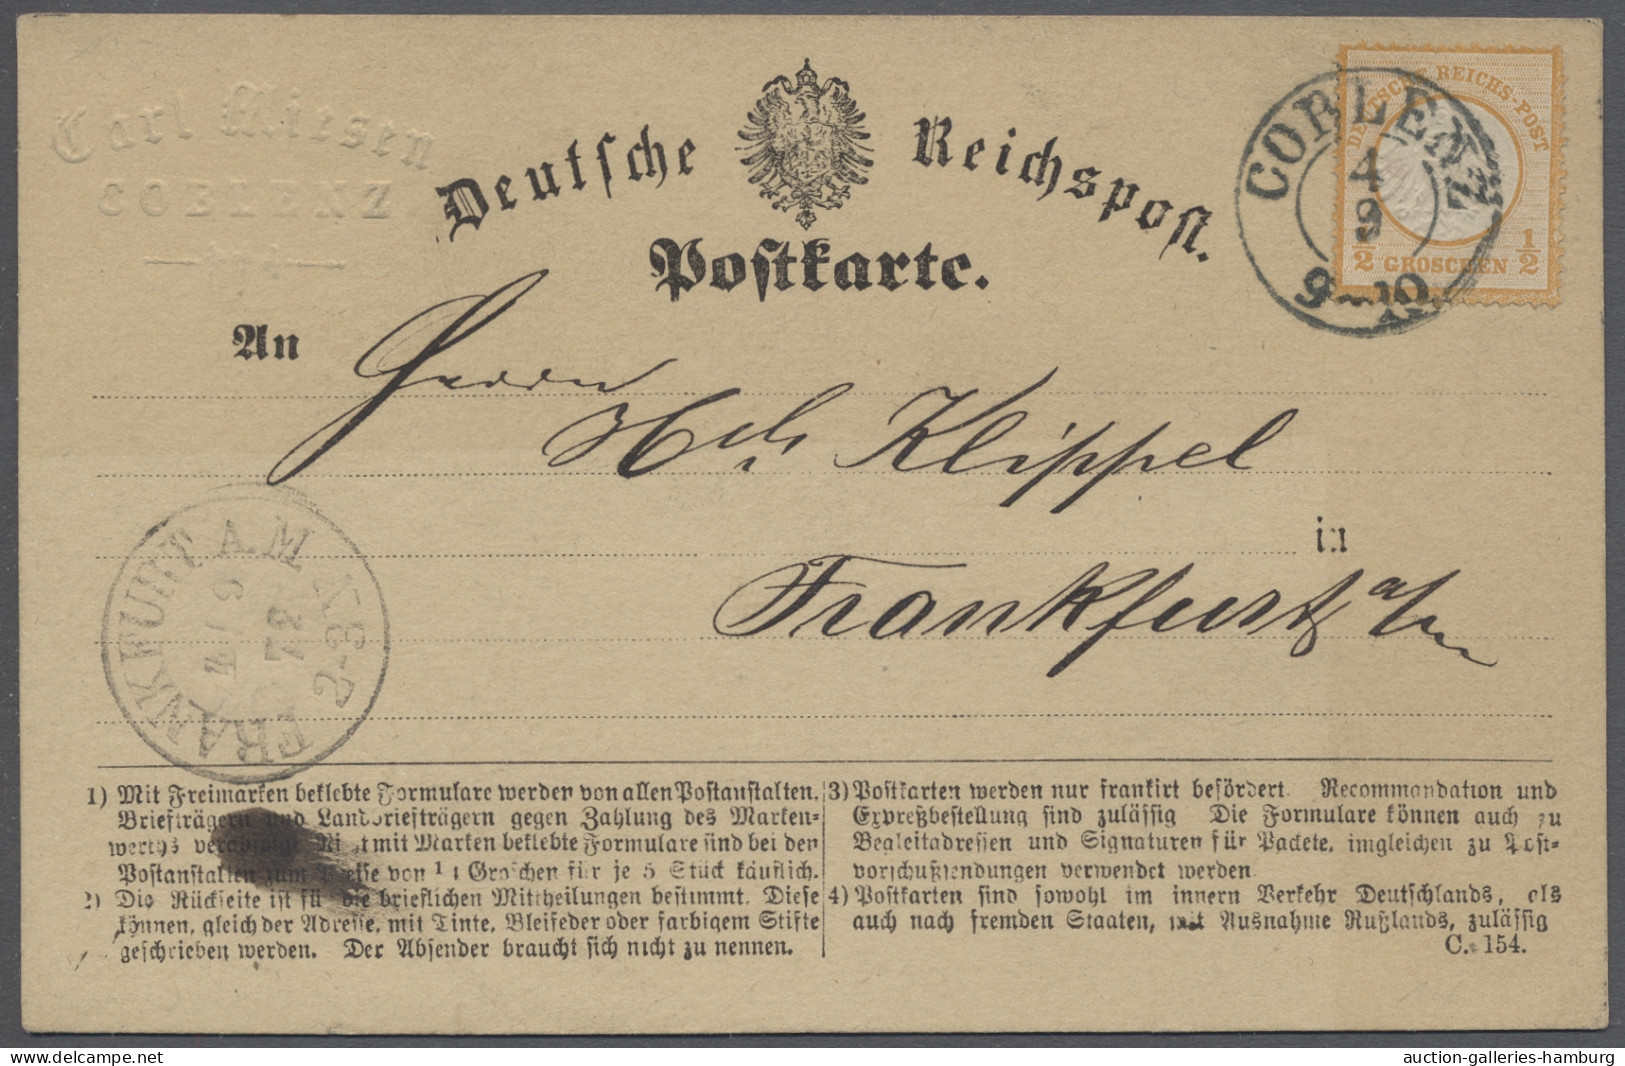 Carl Riesen
COBLENZ
Deutsche Reichspost.
Postkarte.
DEUTSCHE REICHS-POST
1/2 GROSCHEN 1/2
COBLENZ
4
9
9-10
An
Herrn
Hch Klippel
in
Frankfurt a/m
FRANKFURT A.M
4 9
72
2-3
1) Mit Freimarken beklebte Formulare werden von allen Postanstalten,
Briefträgern und Landbriefträgern gegen Zahlung des Marken=
werths verabfolgt. Nicht mit Marken beklebte Formulare sind bei den
Postanstalten zum Preise von 1/4 Groschen für je 5 Stück käuflich.
2) Die Rückseite ist für die brieflichen Mittheilungen bestimmt. Diese
können, gleich der Adresse, mit Tinte, Bleifeder oder farbigem Stifte
geschrieben werden. Der Absender braucht sich nicht zu nennen.
3) Postkarten werden nur frankirt befördert. Recommandation und
Expreßbestellung sind zulässig. Die Formulare können auch zu
Begleitadressen und Signaturen für Packete, imgleichen zu Post=
vorschußsendungen verwendet werden.
4) Postkarten sind sowohl im innern Verkehr Deutschlands, als
auch nach fremden Staaten, mit Ausnahme Rußlands, zulässig
C. 154.
www.delcampe.net
auction-galleries-hamburg